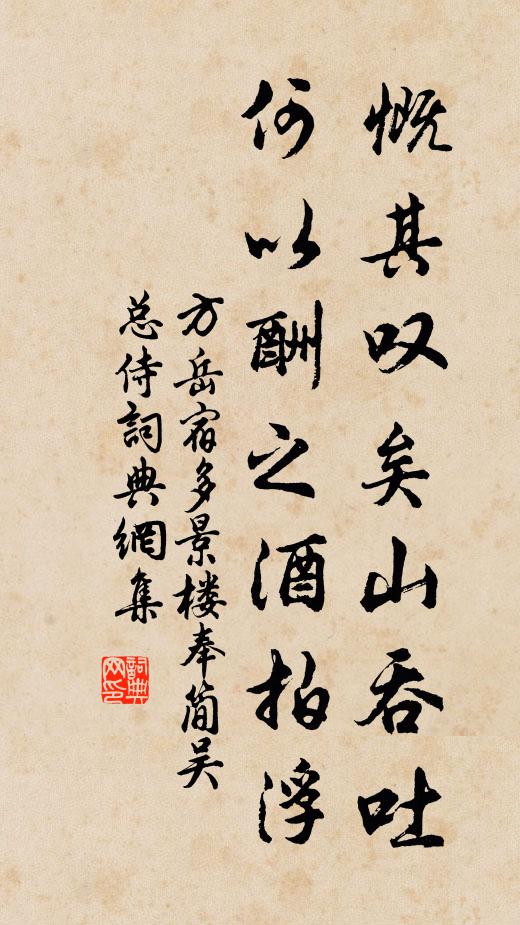 慨其叹矣山吞吐
何以酬之酒拍浮
方岳宿多景楼奉简吴
总侍詞典網集
詞典网印